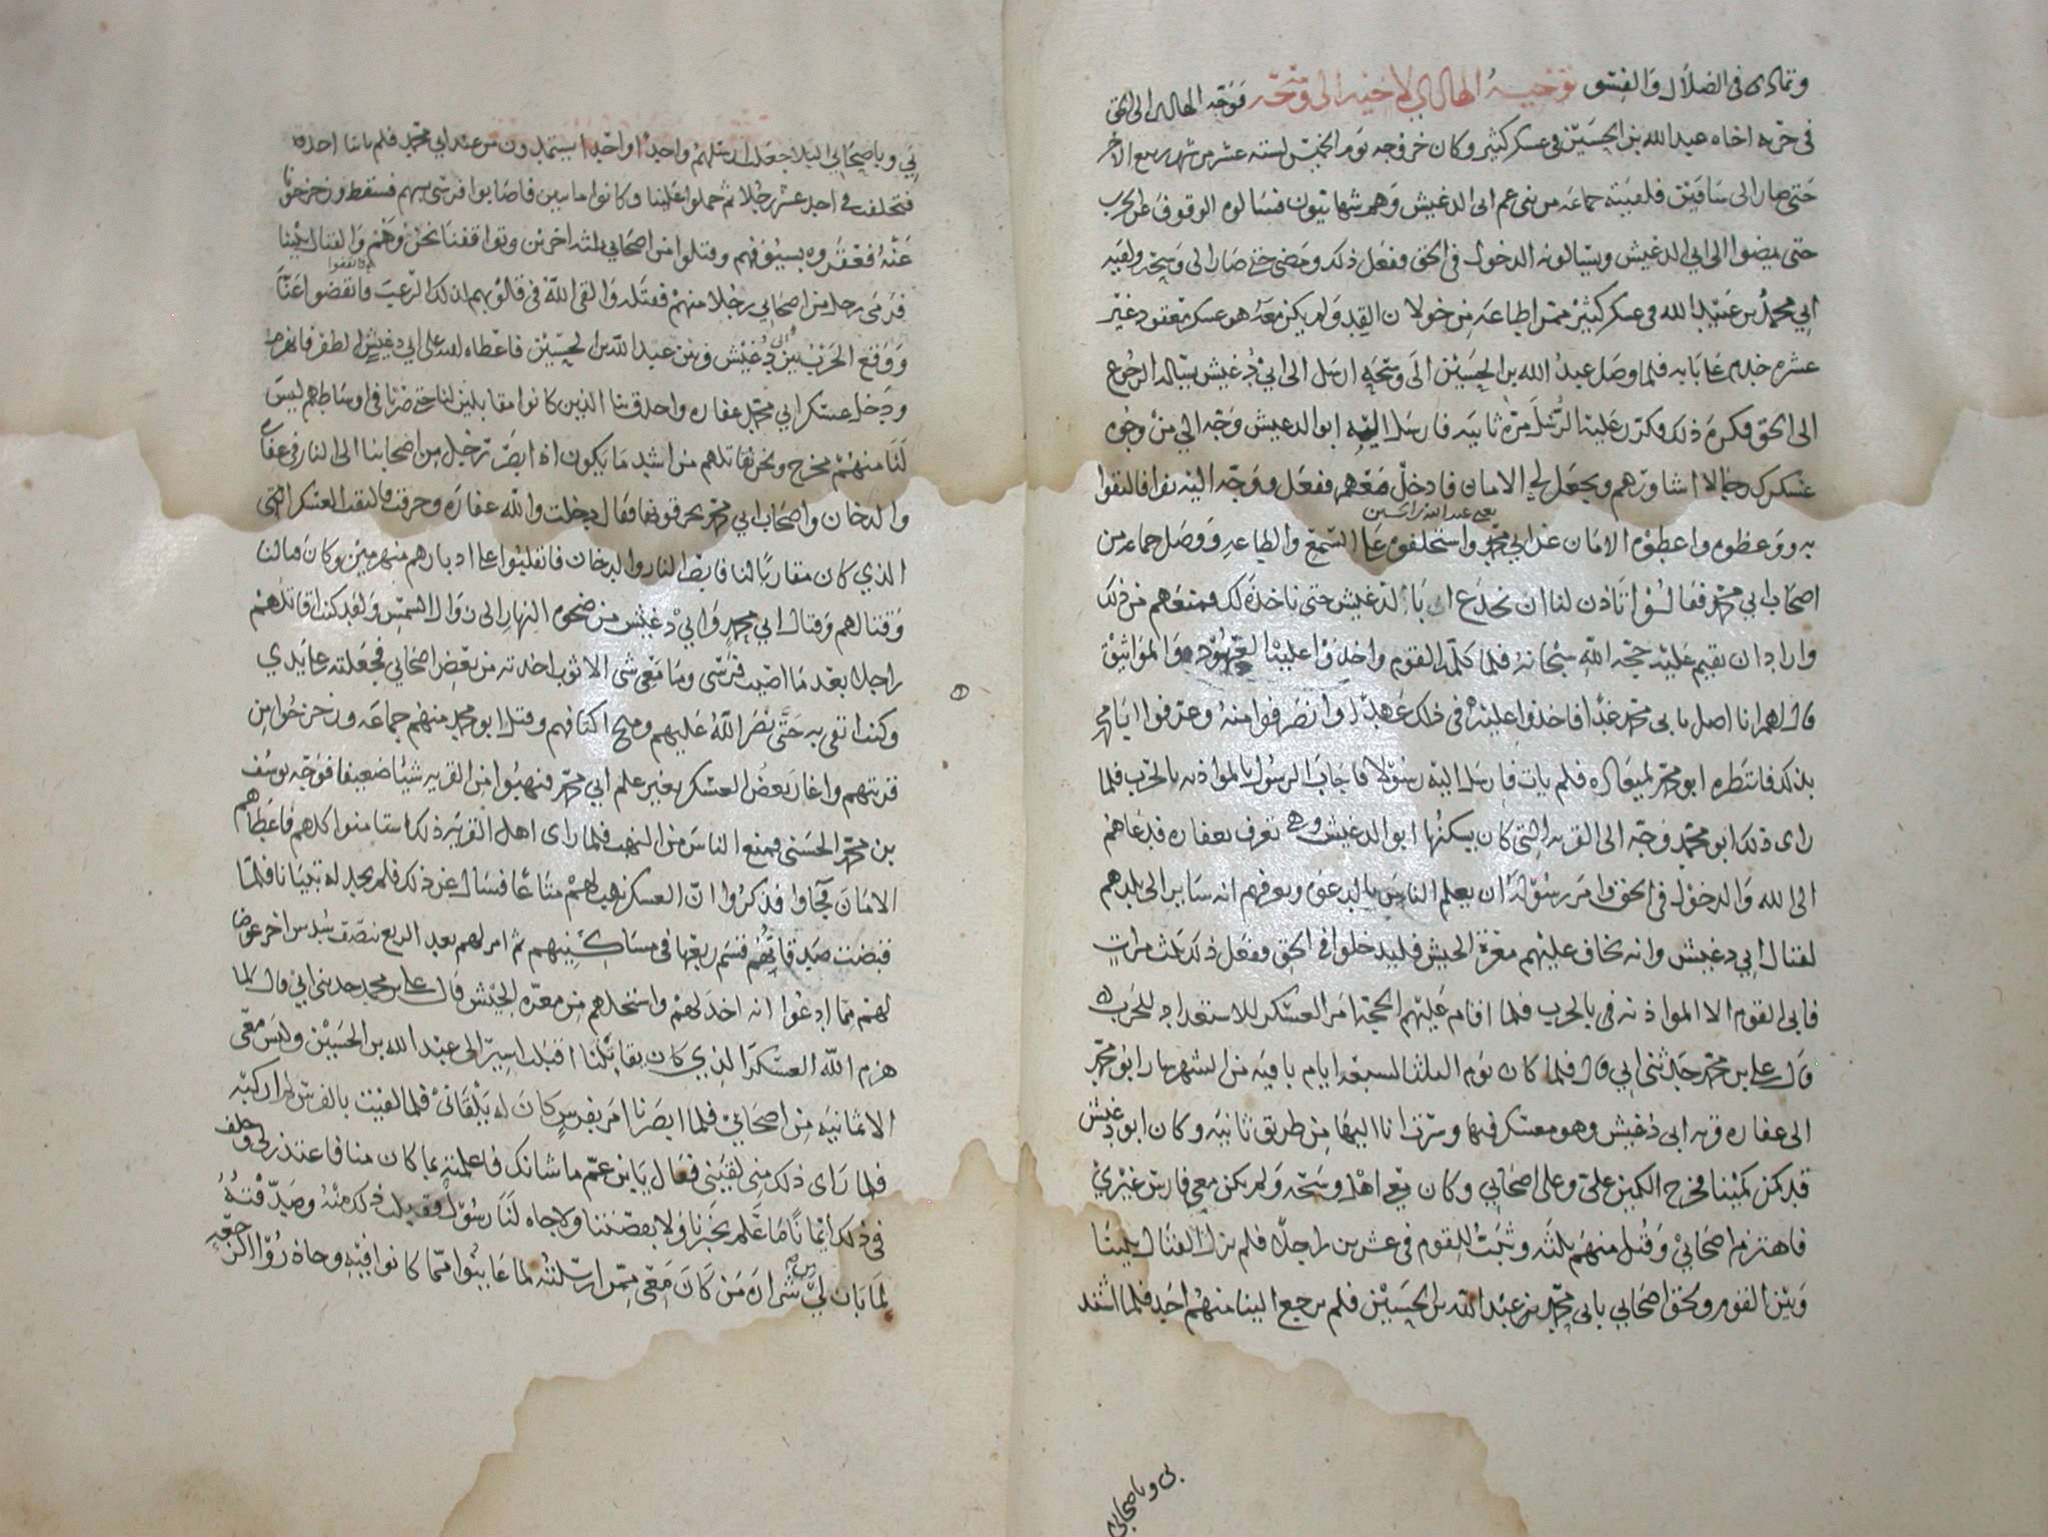 وتمادى في الضلال والفسق توجيه الهادي لاخيه الى وسحه فوجه الهادي الى الحق
في حربه اخاه عبد الله بن الحسين في عسكر كثير وكان خروجه يوم الخميس لسته عشر من شهر ربيع الاخر
حتى صار الى ساقين فلقيته جماعه من بني عم ابي الدغيش وهم شهابيون فسالوه الوقوف عن الحرب
حتى يمضوا الى ابي الدغيش ويسالونه الدخول في الحق ففعل ذلك ومضى حتى صار الى وسحه ولقيه
ابي محمد بن عبيد الله في عسكر كثير ممن اطاعه من خولان القد ولم يكن معه هو عسكر معقود غير
عشره خدم على بابه فلما وصل عبد الله بن الحسين الى وسحه ارسل الى ابي دغيش يساله الرجوع
الى الحق فكره ذلك فكرر عليه الرسل مرة ثانيه فارسل اليه ابو الدغيش وجه الي من وجوه
عسكرك رجالا اشاورهم ويجعل لي الامان فادخل معهم ففعل ووجه اليه نفرا فالتقوا
يعني عبد الله بن الحسين
به ووعظوه واعطوه الامان عن ابي محمد واستحلفوه على السمع والطاعه ووصل جماعه من
اصحاب ابي محمد فقالوا تاذن لنا ان نخدع ابا الدغيش حتى ناخذه لك فمنعهم من ذلك
واراد ان يقيم عليه حجه الله سبحانه فلما كلمه القوم واخذوا عليه العهود والمواثيق
قال لهم انا اصل بابي محمد غدا فاخذوا عليه في ذلك عهدا وانصرفوا منه وعرفوا ابا محمد
بذلك فانتظره ابو محمد لميعاده فلم يات فارسل اليه رسولا فاجاب الرسول بالمواذنه بالحرب فلما
راى ذلك ابو محمد وجه الى القريه التي كان يسكنها ابو الدغيش وهي تعرف بعفاره فدعاهم
الى الله والدخول في الحق وامر رسوله ان يعلم الناس بالدعوى ويعرفهم انه ساير الى بلدهم
لقتال ابي دغيش وانه يخاف عليهم معرة الجيش فليدخلوا في الحق ففعل ذلك ثلث مرات
فابى القوم الا المواذنه في بالحرب فلما اقام عليهم الحجه امر العسكر للاستعداد للحرب
قال علي بن محمد حدثني ابي قال فلما كان يوم الثلثا لسبعه ايام باقيه من الشهر سار ابو محمد
الى عفاره قريه ابي دغيش وهو معسكر فيها وسرت انا اليها من طريق ثانيه وكان ابو دغيش
قد كمن كمينا فخرج الكمين علي وعلى اصحابي وكان معي اهل وسحه ولم يكن معي فارس غيري
فاهتزم اصحابي وقتل منهم ثلثه وثبت للقوم في عشرين راجلا فلم يزل القتال بيننا
وبين القوم ولحق اصحابي بابي محمد بن عبد الله بن الحسين فلم يرجع الينا منهم احد فلما اشتد
بي وباصحابي
بي وباصحابي البلا جعلت ارسلهم واحدا واحدا يستمدون من عند ابي محمد فلم ياتنا احد
فتخلفت في احد عشر رجلا ثم حملوا علينا وكانوا مايتين فاصابوا فرسي بسهم فسقط وزحزحونا
عنه فعقروه بسيوفهم وقتلوا من اصحابي ثلثه اخرين وتواقفنا نحن وهم والقتال بيننا
فرمى رجل من اصحابي رجلا منهم فقتله والقى الله في قلوبهم لذلك الرعب وانفضوا عنا
ووقع الحرب بين ابي دغيش وبين عبد الله بن الحسين فاعطاه الله على ابي دغيش الظفر فانهزم
ودخل عسكر ابي محمد عفاره واحدق بنا الذين كانوا مقابلين لنا حتى صرنا في اوساطهم ليس
لنا منهم مخرج ونحن نقاتلهم من اشد ما يكون اذ ابصر رجل من اصحابنا الى النار في عفاره
والدخان واصحاب ابي محمد يحرقونها فقال دخلت والله عفاره وحرقت فالتفت العسكر
الذي كان مقاربا لنا فابصر النار والدخان فانقلبوا على ادبارهم منهزمين وكان قتالنا
وقتالهم وقتال ابي محمد وابي دغيش من ضحوه النهار الى زوال الشمس ولقد كنت اقاتلهم
راجلا بعد ما اصيب فرسي وما معي شي الا ثوب اخذته من بعض اصحابي فجعلته على يدي
وكنت اتقي به حتى نصر الله عليهم ومنح اكتافهم وقتل ابو محمد منهم جماعه وزحزحوا من
قريتهم واغار بعض العسكر بغير علم ابي محمد فنهبوا من القريه شيئا ضعيفا فوجه يوسف
بن محمد الحسني فمنع الناس من النهب فلما راى اهل القريه ذلك استامنوا كلهم فاعطاهم
الامان فجاوا فذكروا ان العسكر نهب لهم متاعا فسال عن ذلك فلم يجد له تبيانا فلما
قبضت صدقاتهم قسم ربعها في مساكينهم ثم امر لهم بعد الربع بنصف سدس اخر عوضا
لهم مما ادعوا انه اخذ لهم واستحلهم من معره الجيش قال علي بن محمد حدثني ابي قال لما
هزم الله العسكر الذي كان يقاتلنا اقبلت اسير الى عبد الله بن الحسين وليس معي
الا ثمانيه من اصحابي فلما ابصرنا امر بفرس كان له يلقاني فلما لقيت بالفرس لم اركبه
فلما راى ذلك مني لقيني فقال يا ابن عم ما شانك فاعلمته بما كان منا فاعتذر لي وحلف
في ذلك ايمانا ما علم بخبرنا ولا بقصتنا ولا جاه لنا رسول فقبلت ذلك منه وصدقته
لما بان لي شراره من كان معي ممن ارسلته لما عاينوا مما كانوا فيه وحاذروا الرجعه